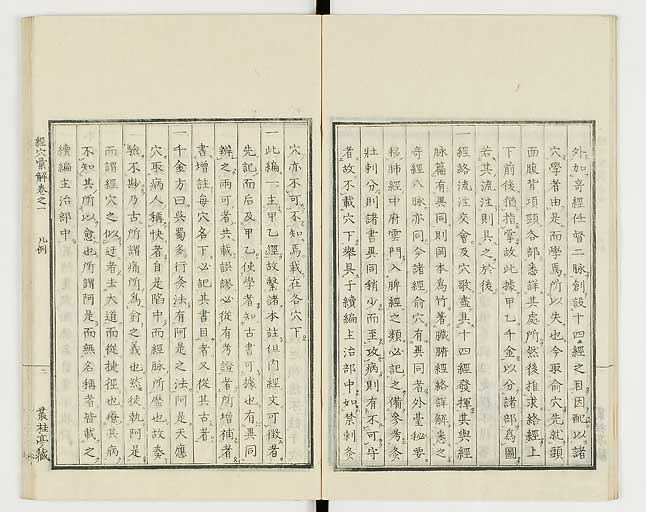 外加奇經任督二脉創設十四經之目因配以諸
穴學者由是而學焉所以失也今取俞穴先就頭
面腹背項頸各部悉詳其處所然後推求絡經上
下前後猶指掌故此據甲乙千金以分諸部爲圖
若其流注則具之於後
一經絡流注交會及穴歌盡具十四經發揮其與經
脉篇有異同則岡本爲竹著臟腑經絡詳解悉之
奇經八脉亦同今諸經俞穴有異同者外臺秘要
移肺經中府雲門入脾經之類必記之備參考灸
壯刺分則諸書異同稍少而至攻病則有不可守
者故不載穴下舉具于續編主治部中如禁刺灸
穴亦不可不知焉載在各穴下
一此編一主甲乙經故繫諸本註但內經文可徵者
先記而后及甲乙使學者知古書可據也有異同
辨之兩可者共載誤謬必從有考證者所增補者
書增註每穴名下必記其書目者又從其古者
一千金方曰吳蜀多行灸法有阿是之法阿是天應
穴取病人稱快者自是陷中而經脉所歷也故奏
驗不尠乃古所謂痛所爲俞之義也然徒執阿是
而謂經穴之似迂者去大道而從捷徑也療其病
不知其所以愈也所謂阿是而無名稱者皆載之
續編主治部中
經穴彙解卷之一
凡例
叢桂亭藏